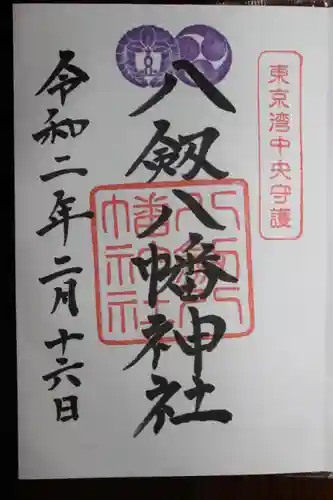 東京湾中央守護
八剱八幡神社
八剱八幡神社
令和二年二月十六日